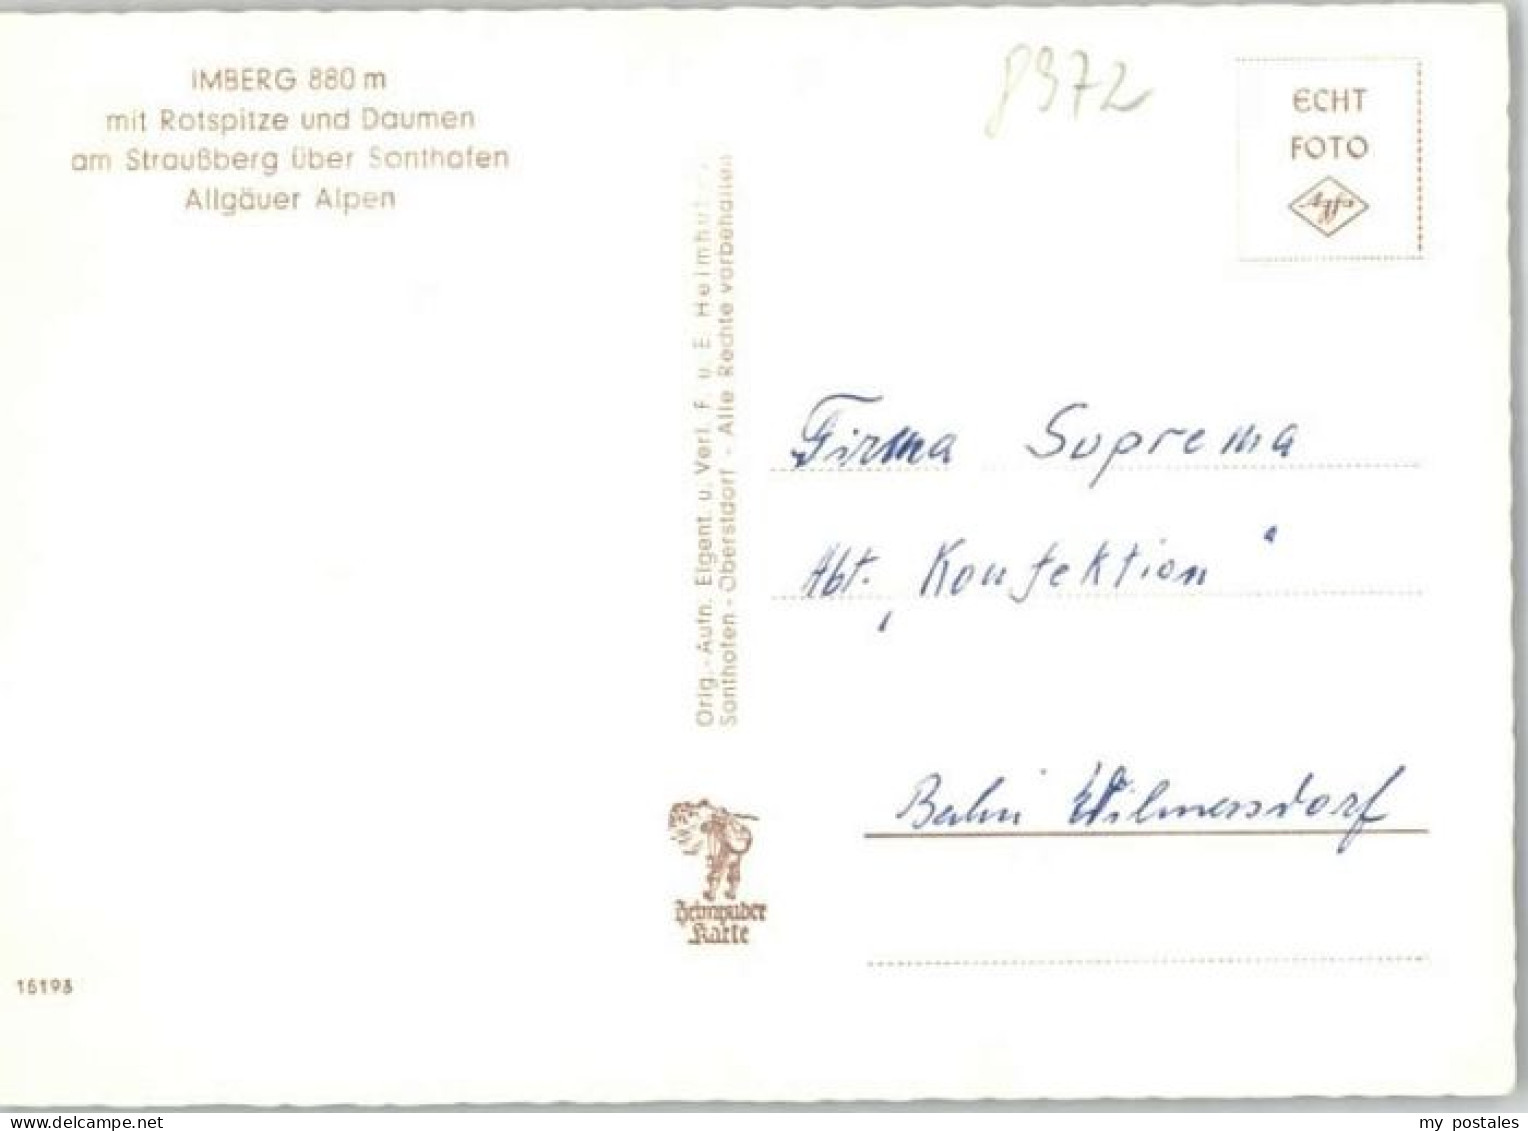 IMBERG 880 m
mit Rotspitze und Daumen
am Straußberg über Sonthofen
Allgäuer Alpen
8972
ECHT
FOTO
Agfa
Orig.-Aufn. Eigent. u. Verl. F. u. E. Heimhuber,
Sonthofen-Oberstdorf - Alle Rechte vorbehalten
Firma Suprema
Abt. „Konfektion“
Berlin Wilmersdorf
Heimhuber
Karte
15193
my postales